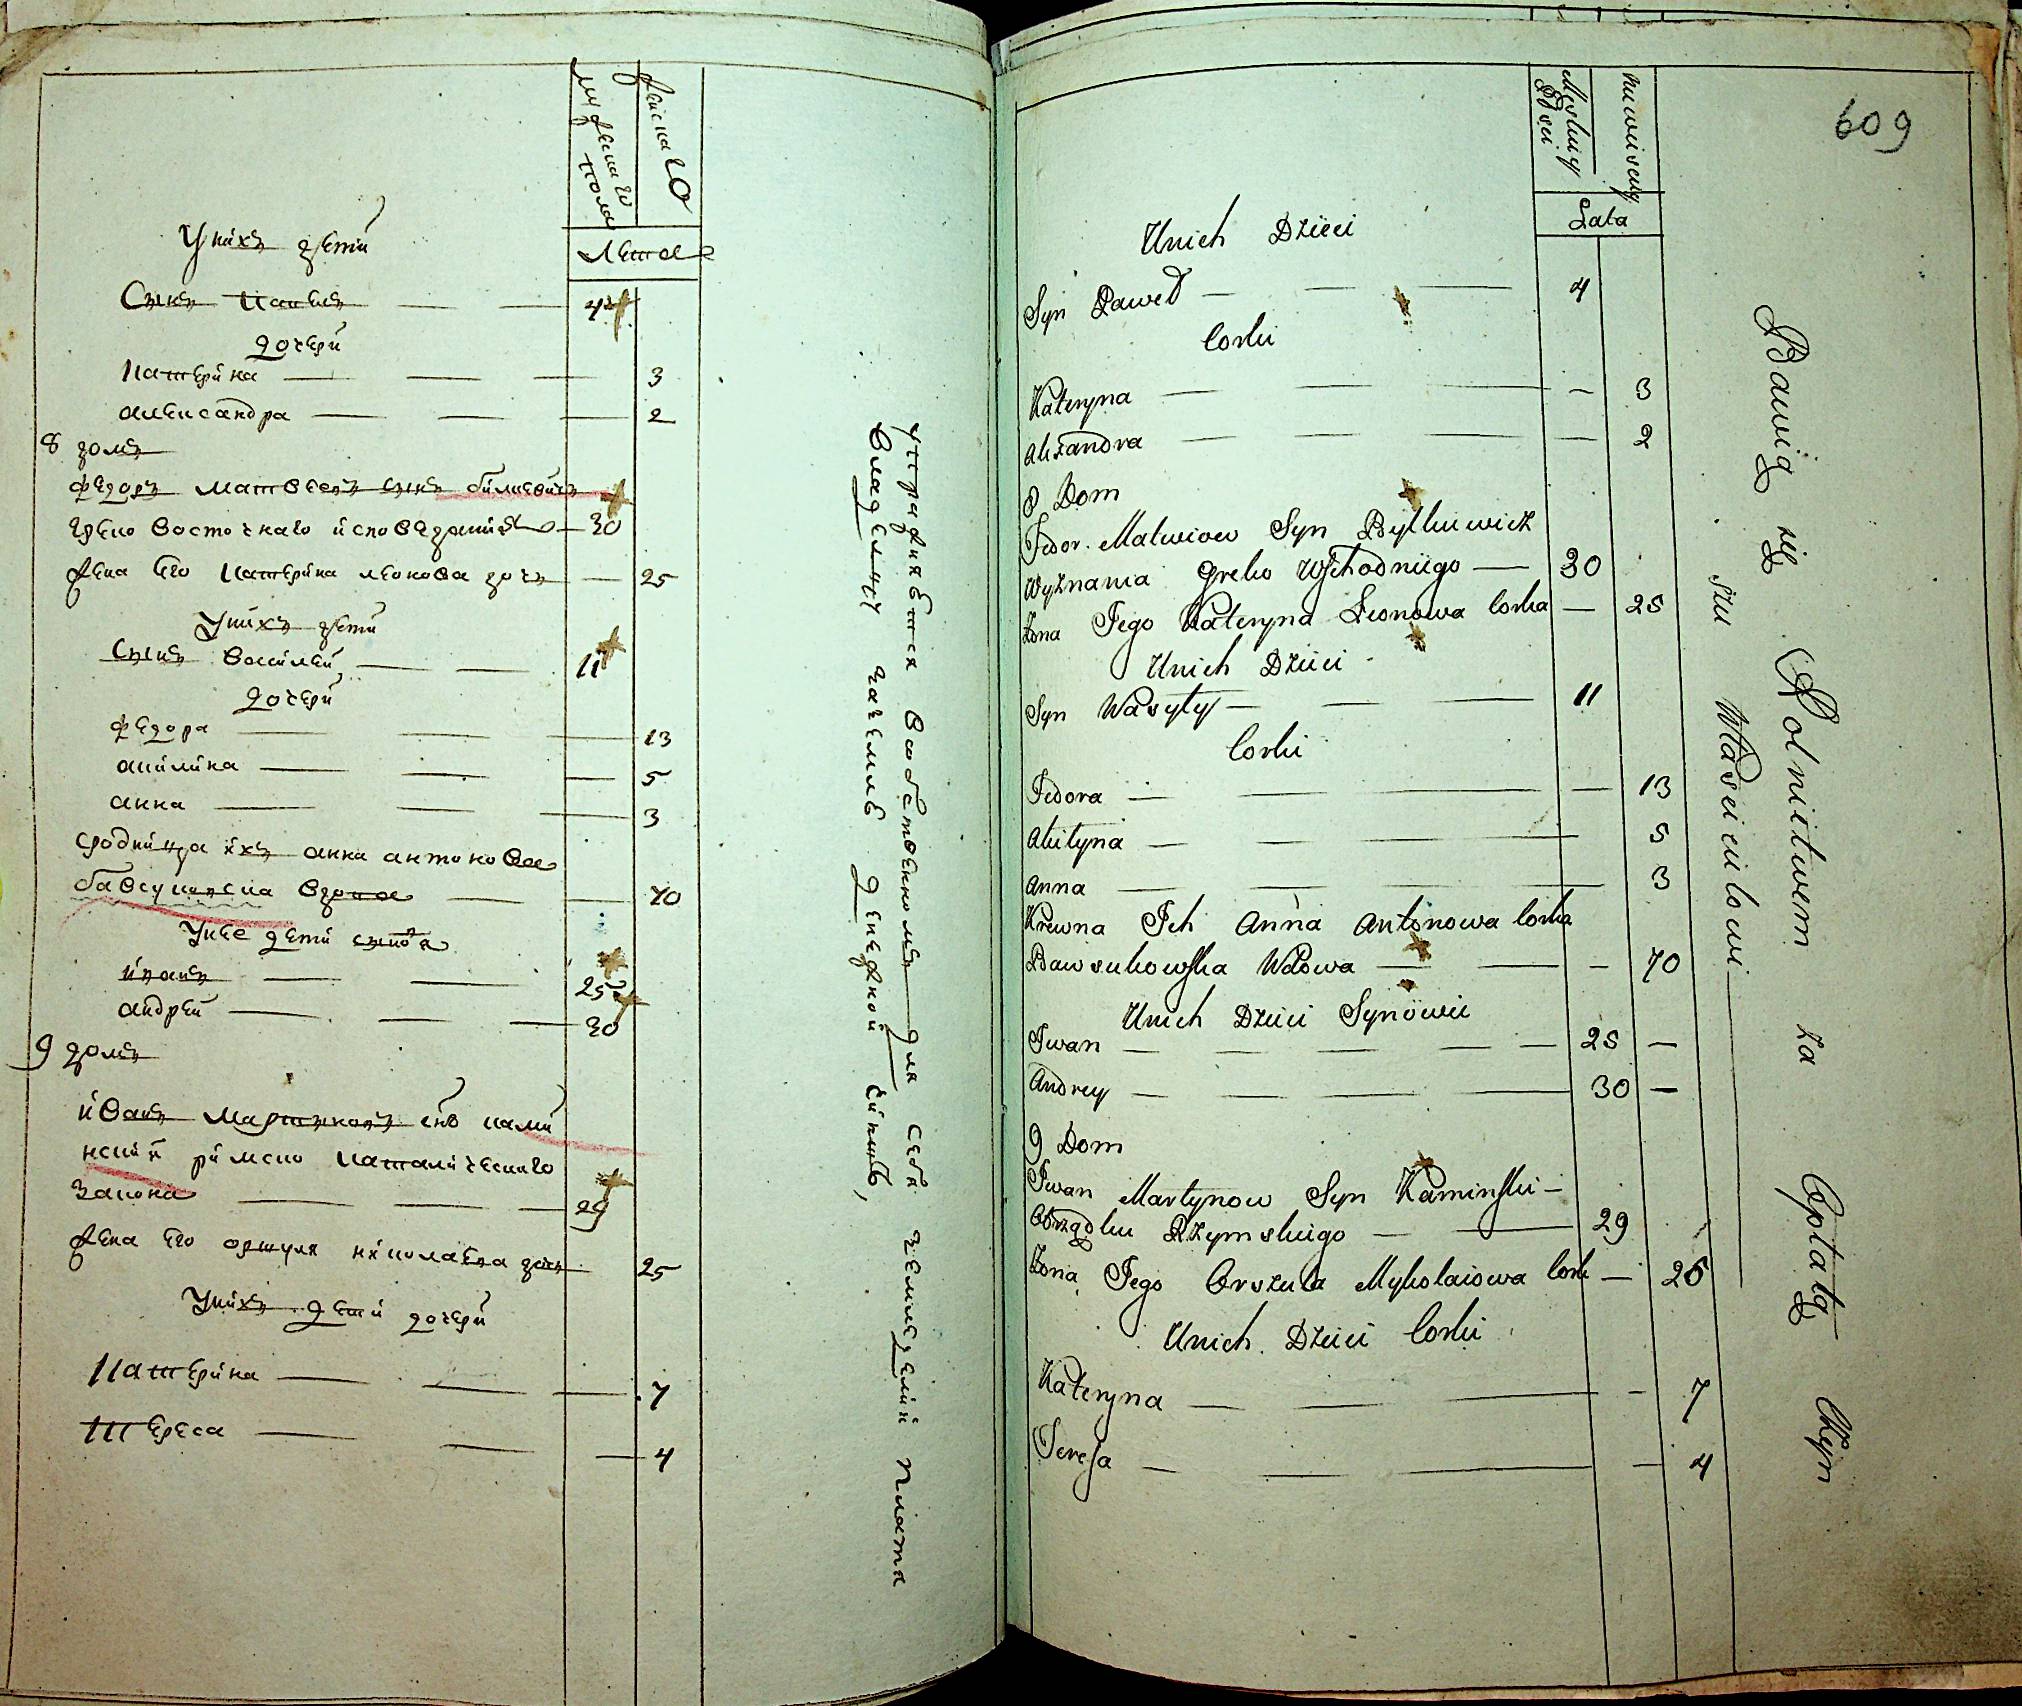 мужеска го пола
женска го
лета
У нихъ дети
Сынъ Павелъ — — 4
дочери
Катерина — — — 3
александра — — — 2
8 домъ
Федоръ Матвеевъ сынъ билкевичъ
греко восточнаго исповедания — 30
жена Его Катерина леонова дочь — 25
У нихъ дети
Сынъ Василей — — 11
дочери
Федора — — — 13
акилина — — — 5
анна — — — 3
сродница ихъ анна антонова
бавсуковска вдова — — 70
У нее дети сынов я
иванъ — — 25
андрей — — — 30
9 домъ
иванъ Мартыновъ снъ Ками
нский римско Католическаго
закона — — — 29
жена Его оршуля николаева дочь 25
У нихъ дети дочери
Катерина — — — 7
Тереса — — — 4
упражняется в собственномъ для себя земледелии плата
владельцу за землю денежной
609
Męskiey Płci
Niewiesciey
Lata
U nich Dzieci
Syn Paweł — — — 4
Corki
Kateryna — — — — 3
Alexandra — — — 2
8 Dom
Fedor Matwiow Syn Bylkiewicz
Wyznania Greko Wschodniego — 30
Żona Jego Kateryna Leonowa Corka — 25
U nich Dzieci
Syn Wasyly — — — 11
Corki
Fedora — — — — 13
Akilyna — — — 5
Anna — — — 3
Krewna Ich Anna Antonowa Corka
Bawsukowska Wdowa — — — 70
U nich Dzieci Synowie
Iwan — — — — — 25 —
Andrey — — — 30 —
9 Dom
Iwan Martynow Syn Kaminski —
Obrządku Rzymskiego — — 29
Żona Jego Orszula Mykolaiowa Cork — 25
U nich Dzieci Corki
Kateryna — — — — 7
Teresa — — — — 4
Bawią się Rolnictwem za Opłatą Czyn
szu Właścicielowi